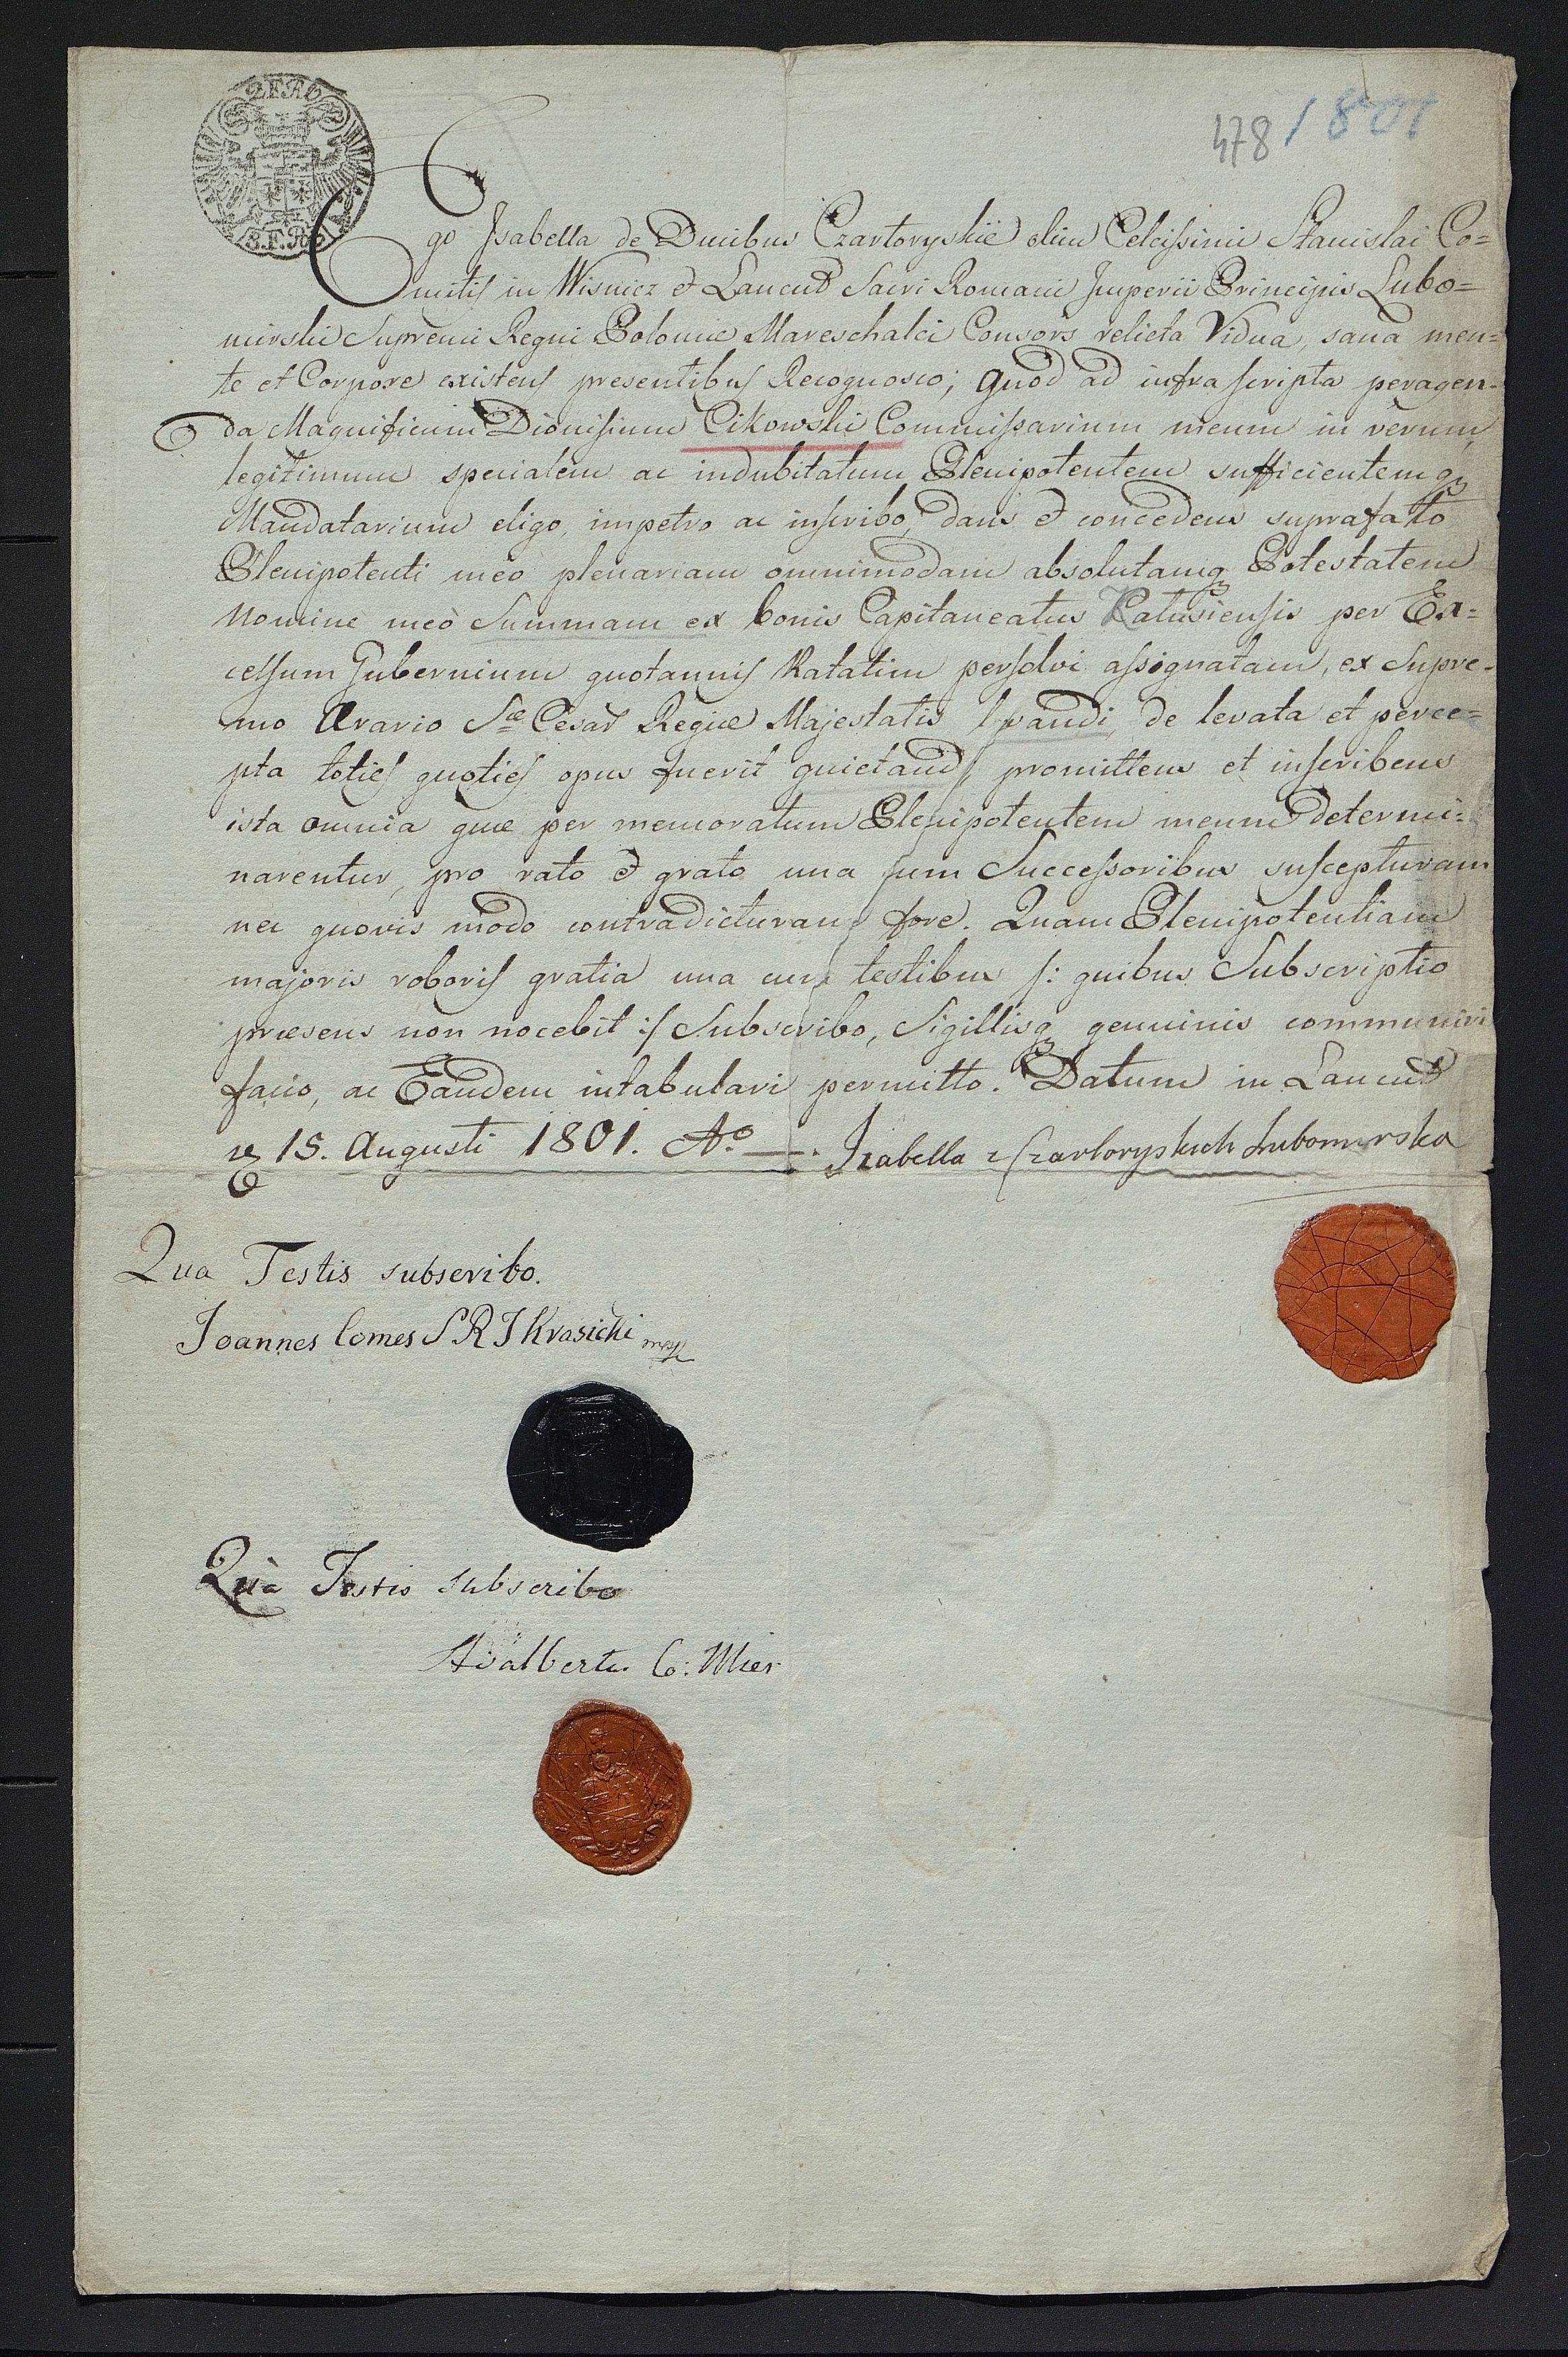 478 1801
Ego Isabella de Ducibus Czartoryskie olim Celcissimi Stanislai Co=
mitis in Wisnicz et Lancut Sacri Romani Imperii Principis Lubo=
mirski Supremi Regni Poloniæ Mareschalci Consors relicta Vidua, sana men=
te et Corpore existens presentibus Recognosco; quod ad infrascripta peragen=
da Magnificum Dionisium Cikowski Commissarium meum in verum,
legitimum specialem ac indubitatum Plenipotentem sufficientemq
Mandatarium eligo, impetro ac inscribo, dans et concedens suprafato
Plenipotenti meo plenariam omnimodam absolutamq Potestatem
Nomine meo Summam ex bonis Capitaneatus Kalusiensis per Ex=
celsum Gubernium quotannis Ratatim persolvi assignatam, ex Supre=
mo Ærario Sæ Cesar Regiæ Majestatis l vandi, de levata et perce=
pta toties quoties opus fuerit quietandi, promittens et inscribens
ista omnia quæ per memoratum Plenipotentem meum determi=
narentur, pro rato et grato una cum Successoribus suscepturam
nec quovis modo contradicturam fore. Quam Plenipotentiam
majoris roboris gratia una cum testibus /: quibus Subscriptio
præsens non nocebit :/ Subscribo, Sigillisq genuinis communiri
facio, ac Eandem intabulari permitto. Datum in Lancut
15. Augusti 1801. Ao
Izabella z Czartoryskich Lubomirska
Qua Testis subscribo.
Joannes Comes S R J Krasicki mp
Quà Testis subscribo
Adalbertus Co: Mier